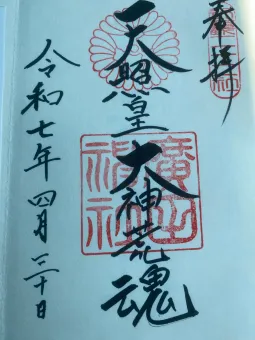 奉拝
天照皇大神荒魂
廣田神社
令和七年四月三十日